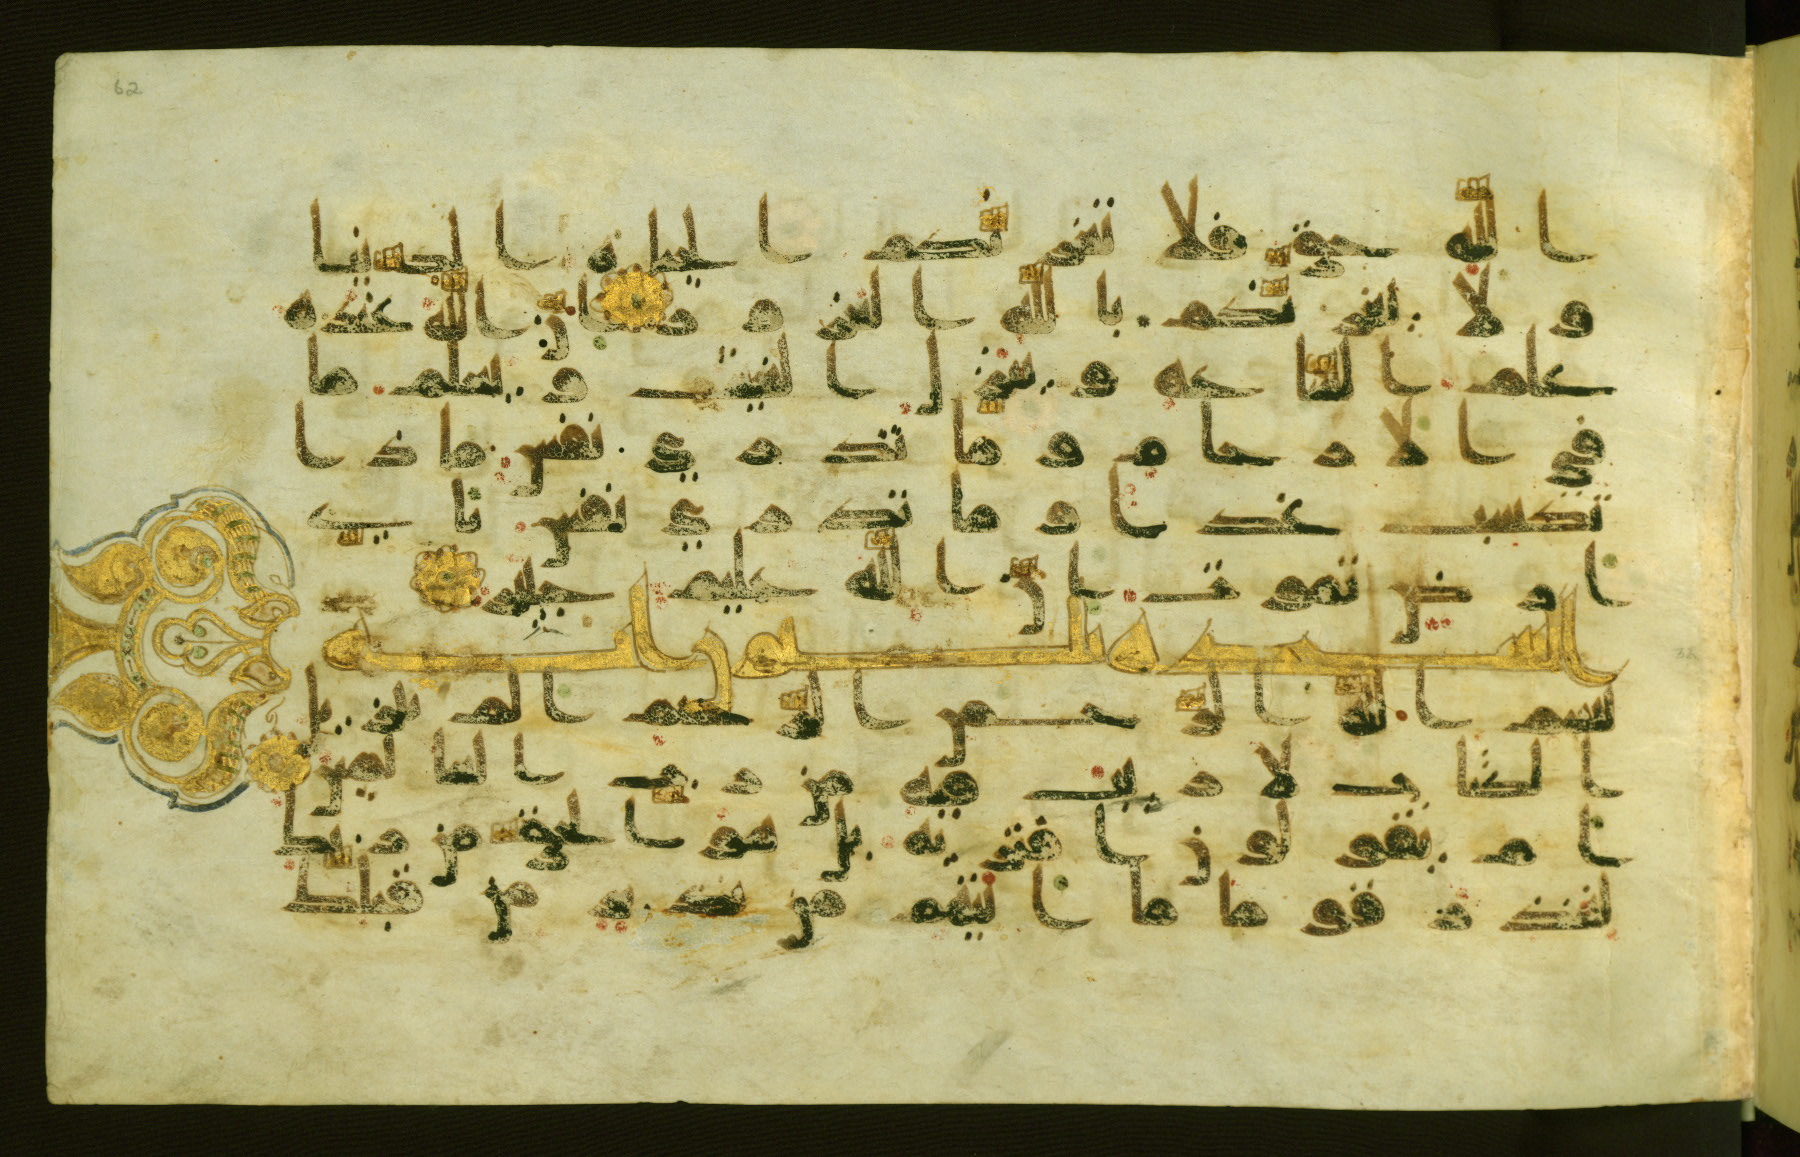 62
الله حق فلا تغرنكم الحيوة الدنيا
ولا يغرنكم بالله الغرور ان الله عنده
علم الساعة وينزل الغيث ويعلم ما
في الارحام وما تدري نفس ماذا
تكسب غدا وما تدري نفس باي
ارض تموت ان الله عليم خبير
السجده ثلثون ايه
بسم الله الرحمن الرحيم الم تنزيل
الكتب لا ريب فيه من رب العلمين
ام يقولون افتريه بل هو الحق من ربك
لتنذر قوما ما اتيهم من نذير من قبلك